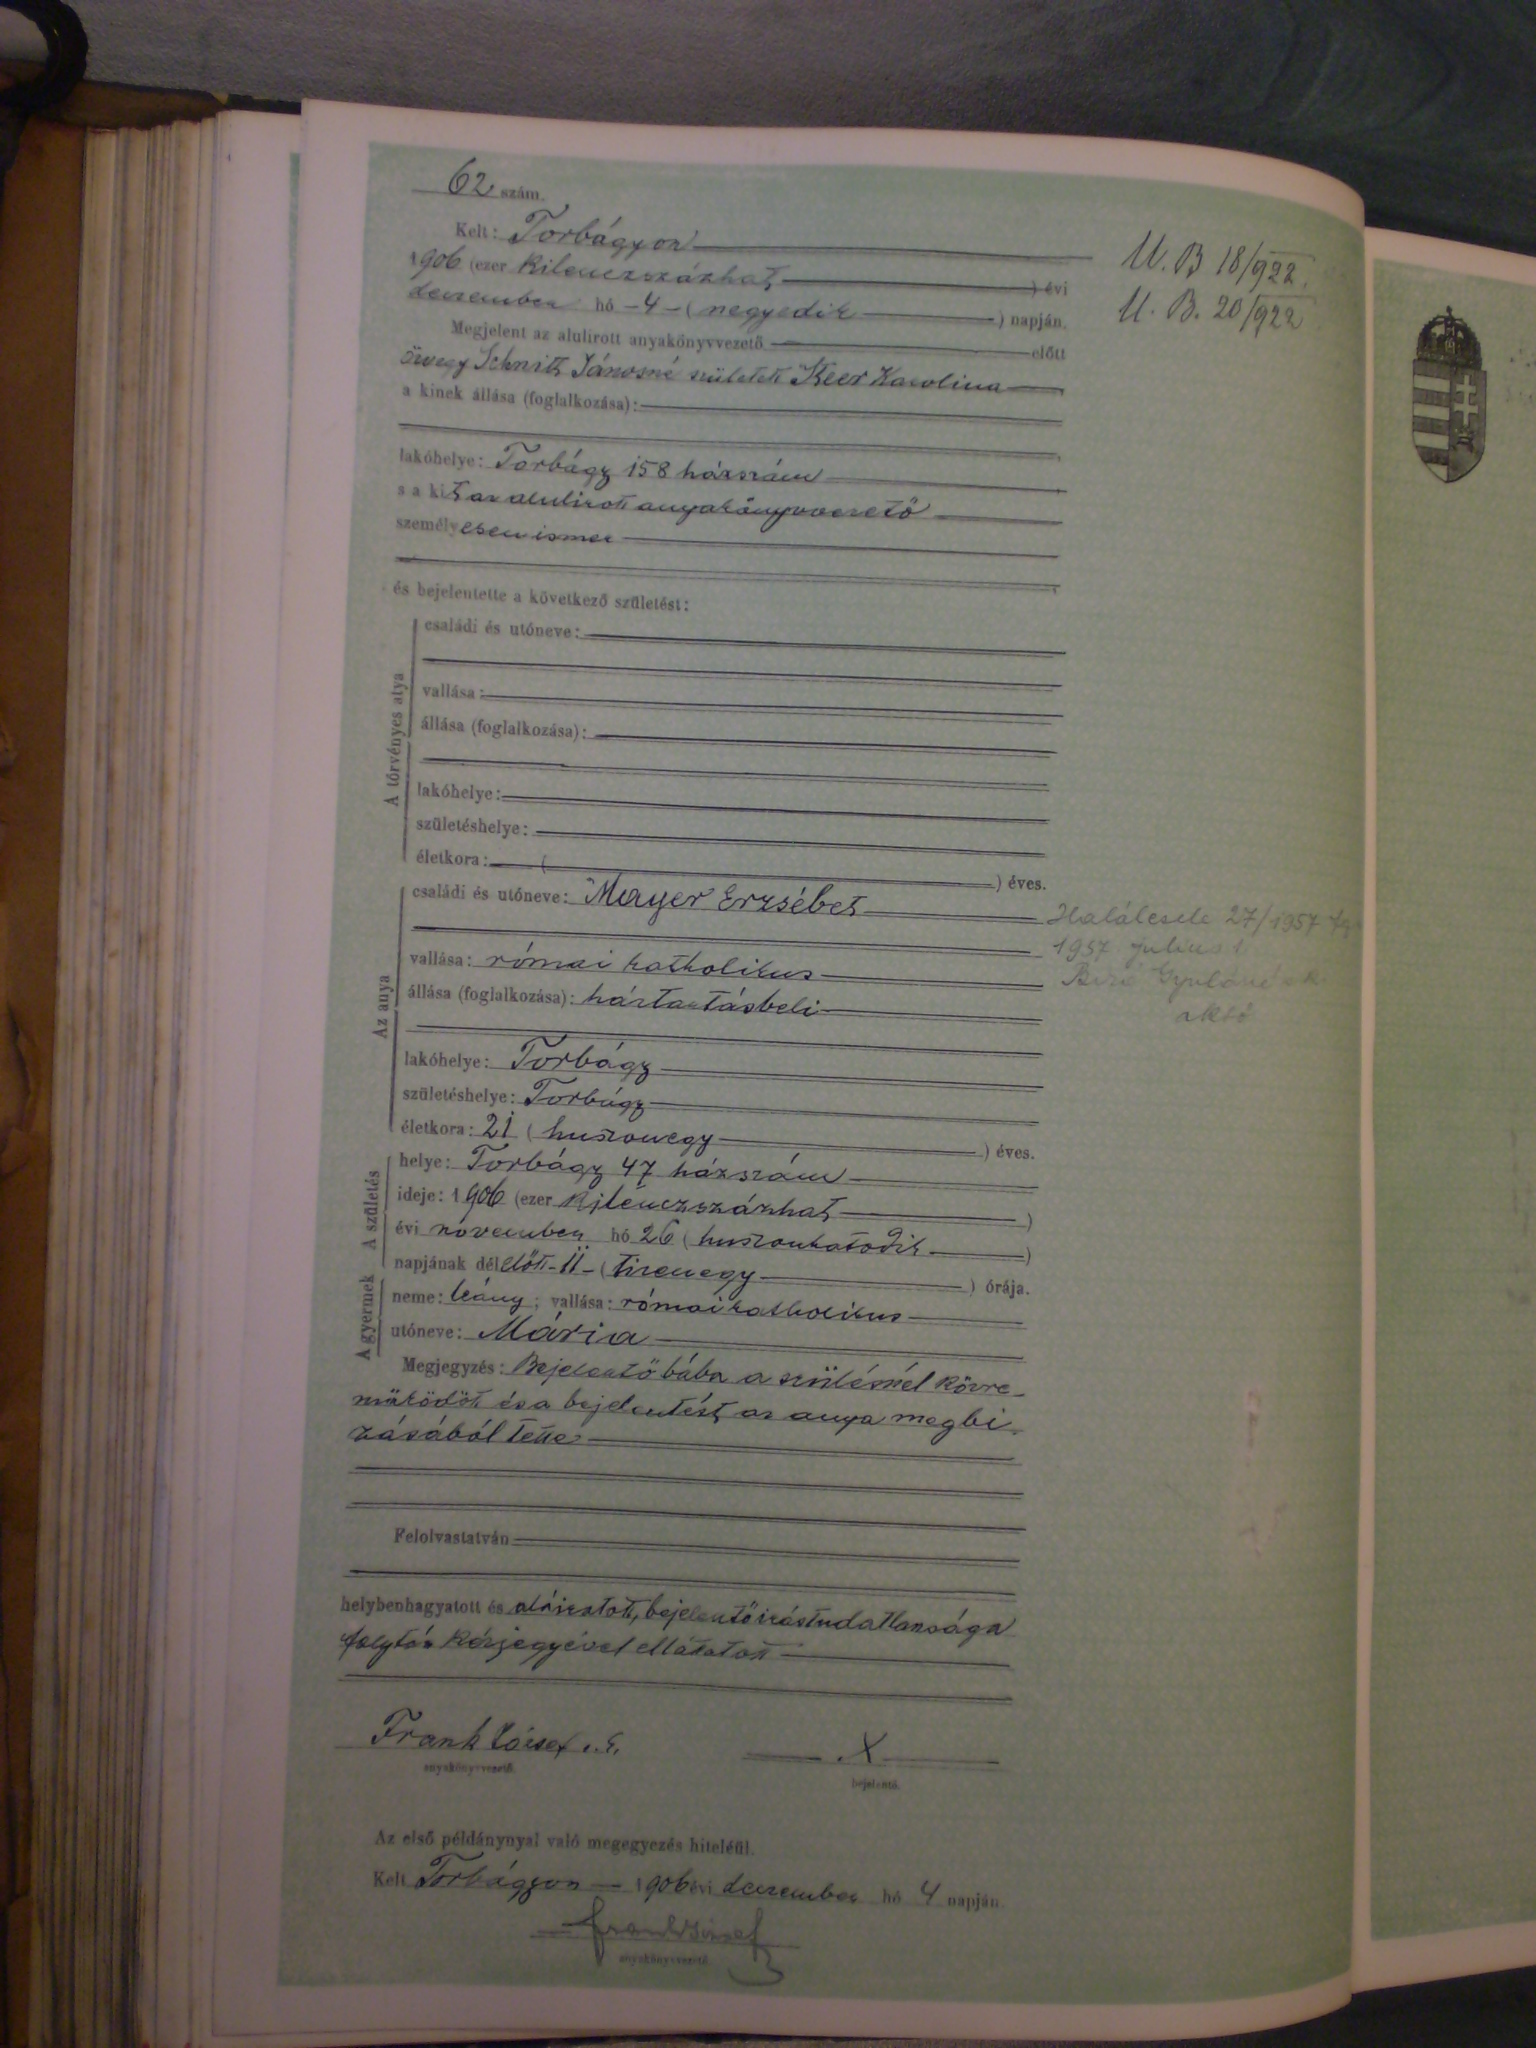 62 szám.
Kelt: Torbágyon
1906 (ezer kilenczszázhat) évi
deczember hó -4- (negyedik) napján.
Megjelent az alulirott anyakönyvvezető előtt
özvegy Schnitt Jánosné született "Keer Karolina
a kinek állása (foglalkozása):
lakóhelye: Torbágy 158 házszám
s a kit az alulirott anyakönyvvezető
személyesen ismer
és bejelentette a következő születést:
A törvényes atya
családi és utóneve:
vallása:
állása (foglalkozása):
lakóhelye:
születéshelye:
életkora: ( ) éves.
Az anya
családi és utóneve: "Mayer" Erzsébet
vallása: római katholikus
állása (foglalkozása): háztartásbeli
lakóhelye: Torbágy
születéshelye: Torbágy
életkora: 21 (huszonegy) éves.
A születés
helye: Torbágy 47 házszám
ideje: 1906 (ezer kilenczszázhat)
évi november hó 26 (huszonhatodik)
napjának délelőtt -11- (tizenegy) órája.
A gyermek
neme: leány; vallása: római katholikus
utóneve: Mária
Megjegyzés: Bejelentő bába a szülésnél közre-
működött és a bejelentést az anya megbi-
zásából tette
Felolvastatván
helybenhagyatott és aláiratott, bejelentő irástudatlansága
folytán kézjegyével ellátatott
Frank József s. k.
anyakönyvvezető.
X
bejelentő.
Az első példánynyal való megegyezés hiteléül.
Kelt Torbágyon 1906 évi deczember hó 4 napján
Frank József
anyakönyvvezető.
U. B 18/922.
U. B. 20/922
Haláleset 27/1957
1957 julius 1
Biró Gyuláné